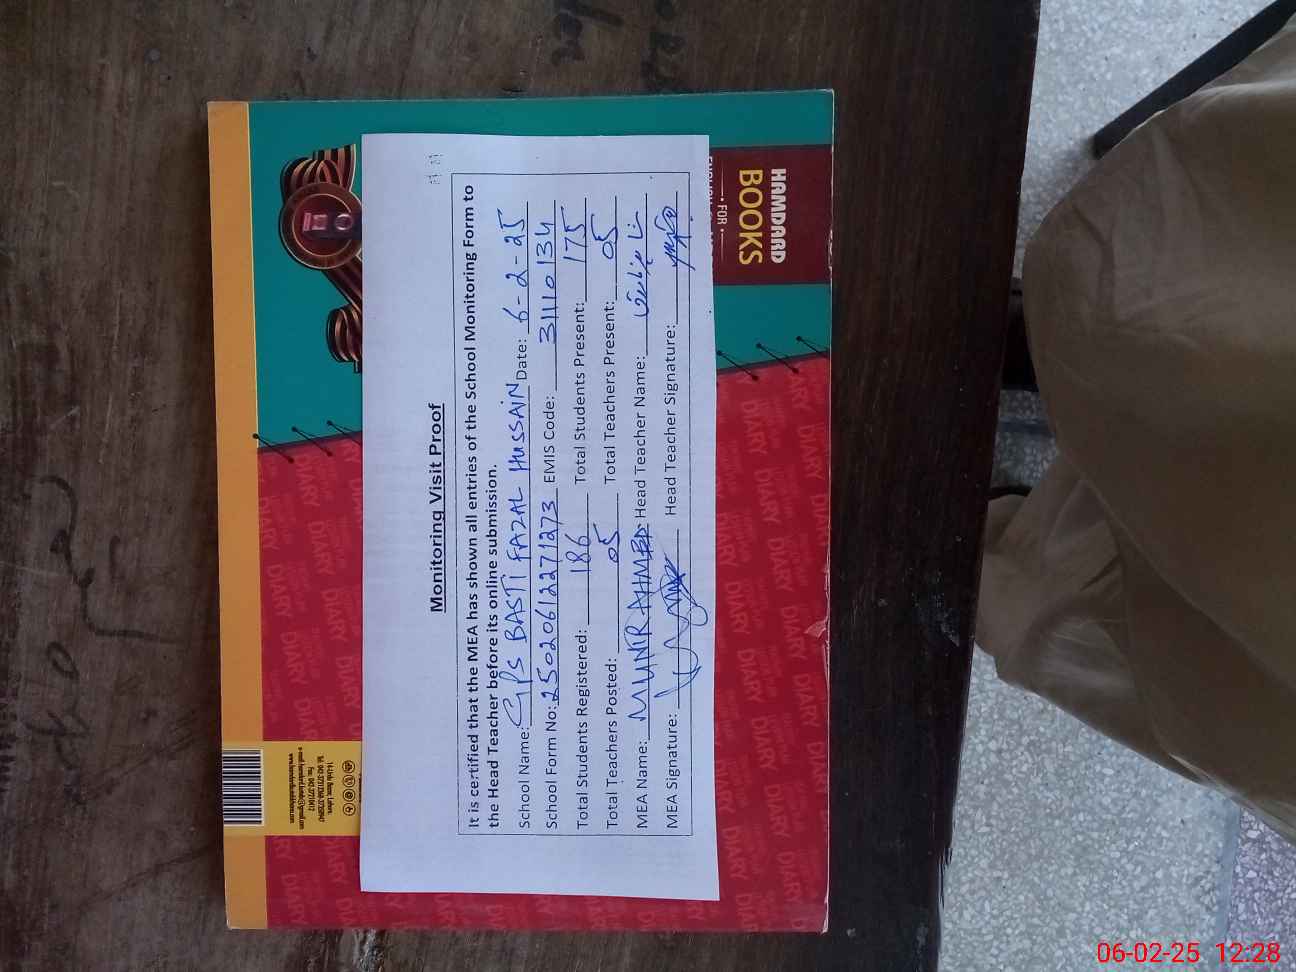 Monitoring Visit Proof
It is certified that the MEA has shown all entries of the School Monitoring Form to
the Head Teacher before its online submission.
School Name: GPS BASTI FAZAL HUSSAIN Date: 6-2-25
School Form No: 25020612271273 EMIS Code: 31110134
Total Students Registered: 186 Total Students Present: 175
Total Teachers Posted: 05 Total Teachers Present: 05
MEA Name: MUNIR AHMED Head Teacher Name:
MEA Signature: Head Teacher Signature:
HAMDARD
BOOKS
FOR
DIARY DIARY DIARY DIARY
06-02-25 12:28